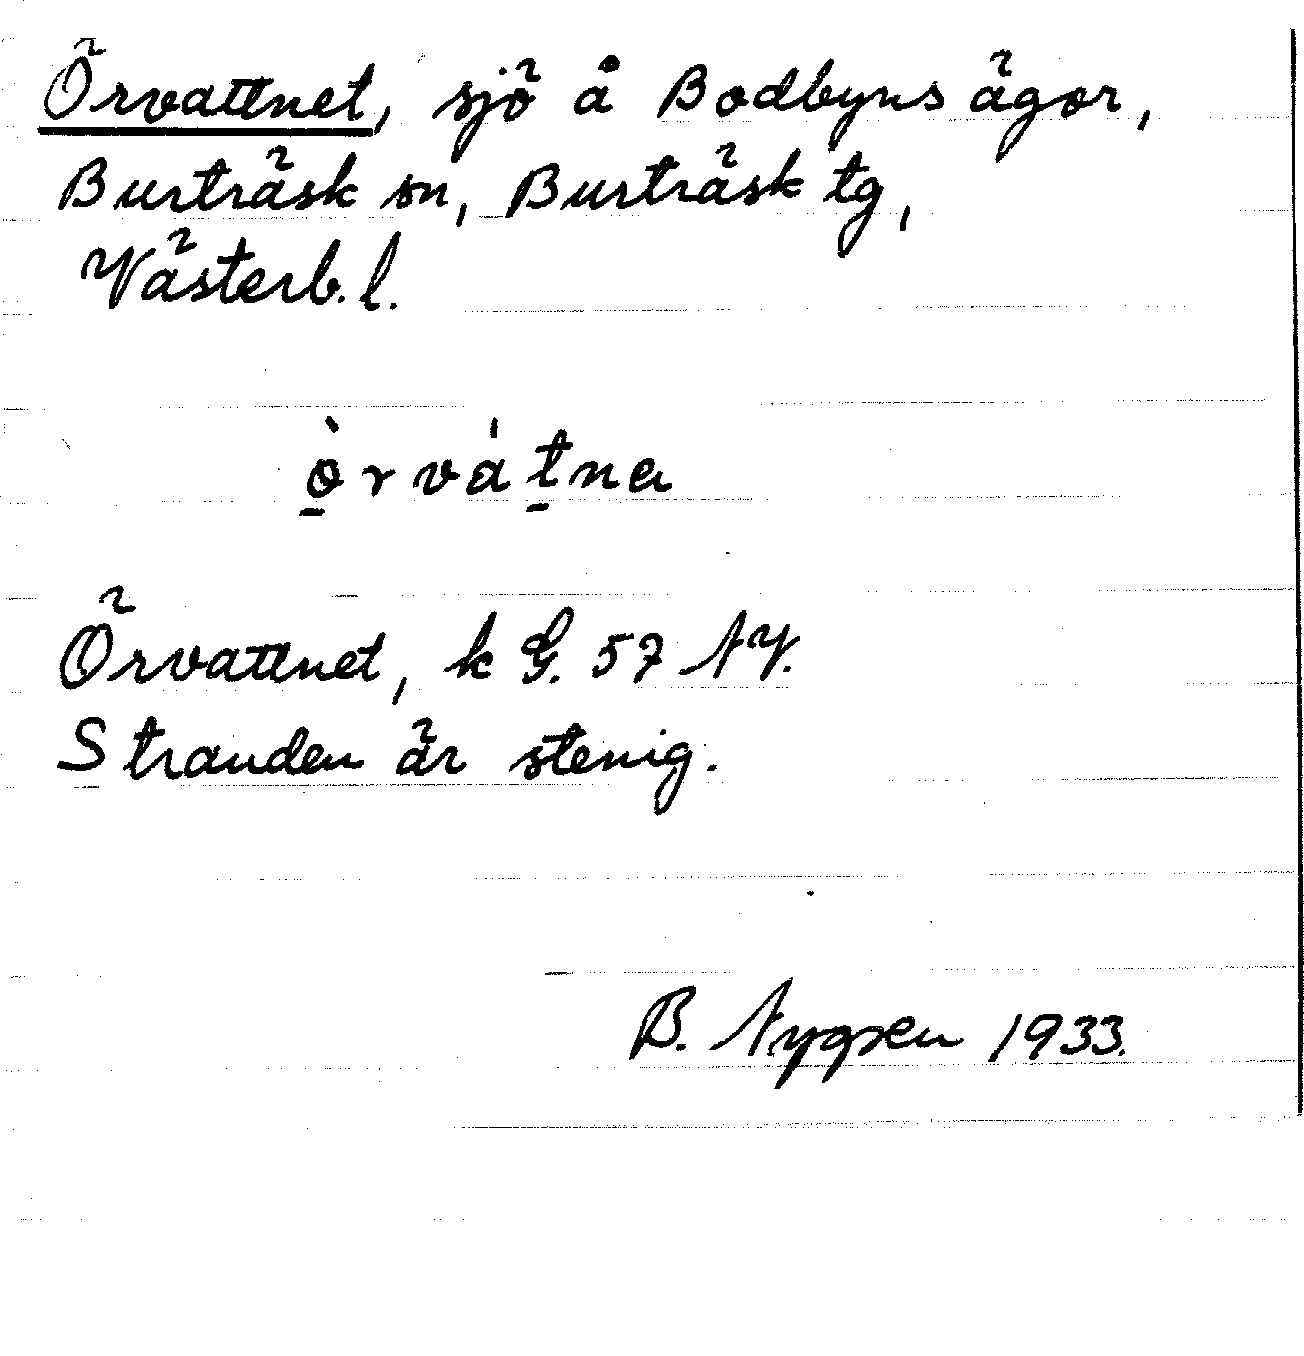 Örvattnet, sjö å Bodbyns ägor,
Burträsk sn, Burträsk tg,
Västerb. l.
ò̱rvátna
Örvattnet, k G. 57 NV.
Stranden är stenig.
B. Nygren 1933.